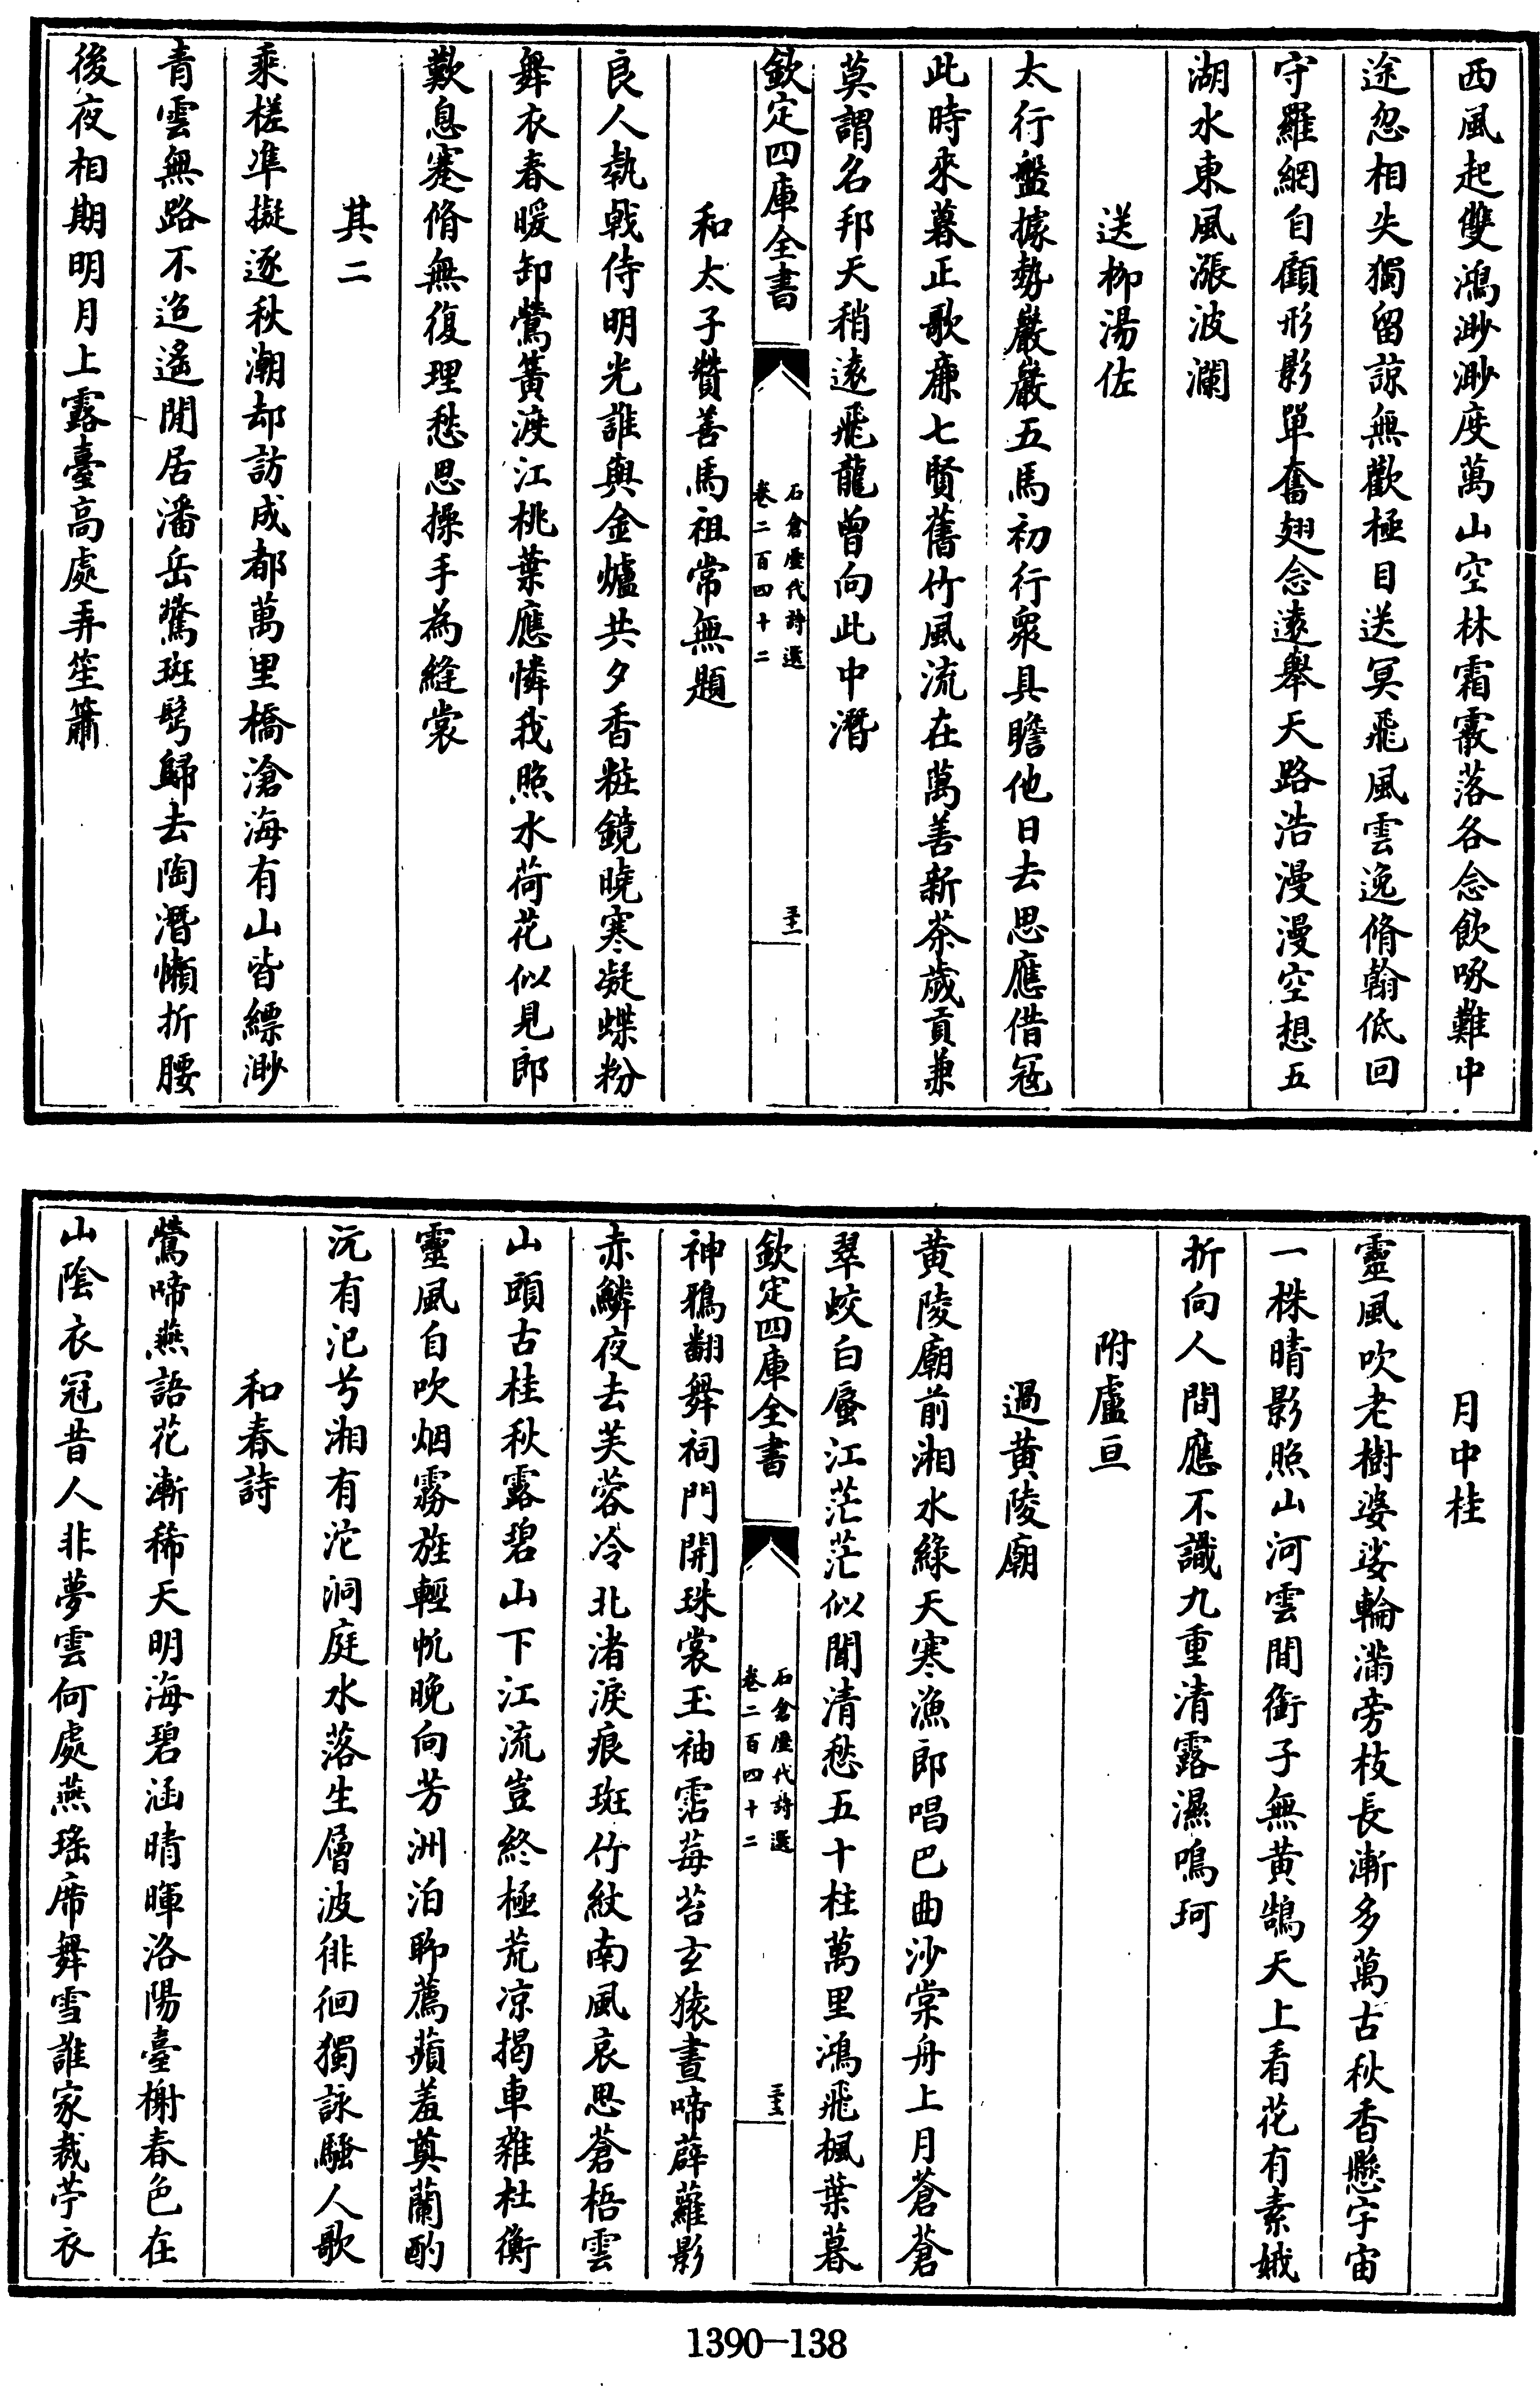 西風起雙鴻渺渺度萬山空林霜霰落各念飲啄難中
途忽相失獨留諒無歡極目送冥飛風雲逸脩翰低回
守羅網自顧形影單奮翅念遠舉天路浩漫漫空想五
湖水東風漲波瀾
送柳湯佐
太行盤據勢巖巖五馬初行衆具瞻他日去思應借寇
此時來暮正歌廉七賢舊竹風流在萬善新茶歲貢兼
莫謂名邦天稍遠飛龍曾向此中潛
欽定四庫全書
石倉歷代詩選
卷二百四十二
和太子贊善馬祖常無題
良人執戟侍明光誰與金爐共夕香粧鏡曉寒凝蝶粉
舞衣春暖卸鶯簧渡江桃葉應憐我照水荷花似見郎
歎息蹇脩無復理愁思摻手為縫裳
其二
乘槎準擬逐秋潮却訪成都萬里橋滄海有山皆縹渺
青雲無路不迢遙閒居潘岳驚斑鬂歸去陶潛懶折腰
後夜相期明月上露臺高處弄笙簫
月中桂
靈風吹老樹婆娑輪滿旁枝長漸多萬古秋香懸宇宙
一株晴影照山河雲間銜子無黃鵠天上看花有素娥
折向人間應不識九重清露濕鳴珂
附盧亘
過黃陵廟
黃陵廟前湘水綠天寒漁郎唱巴曲沙棠舟上月蒼蒼
翠蛟白蜃江茫茫似聞清愁五十柱萬里鴻飛楓葉暮
欽定四庫全書
石倉歷代詩選
卷二百四十二
神鴉翻舞祠門開珠裳玉袖霑莓苔玄猿晝啼薜蘿影
赤鱗夜去芙蓉冷北渚淚痕斑竹紋南風哀思蒼梧雲
山頭古桂秋露碧山下江流豈終極荒凉揭車雜杜衡
靈風自吹烟霧旌輕帆晚向芳洲泊聊薦蘋羞奠蘭酌
沅有汜兮湘有沱洞庭水落生層波徘徊獨詠騷人歌
和春詩
鶯啼燕語花漸稀天明海碧涵晴暉洛陽臺榭春色在
山陰衣冠昔人非夢雲何處燕瑤席舞雪誰家裁苧衣
1390-138